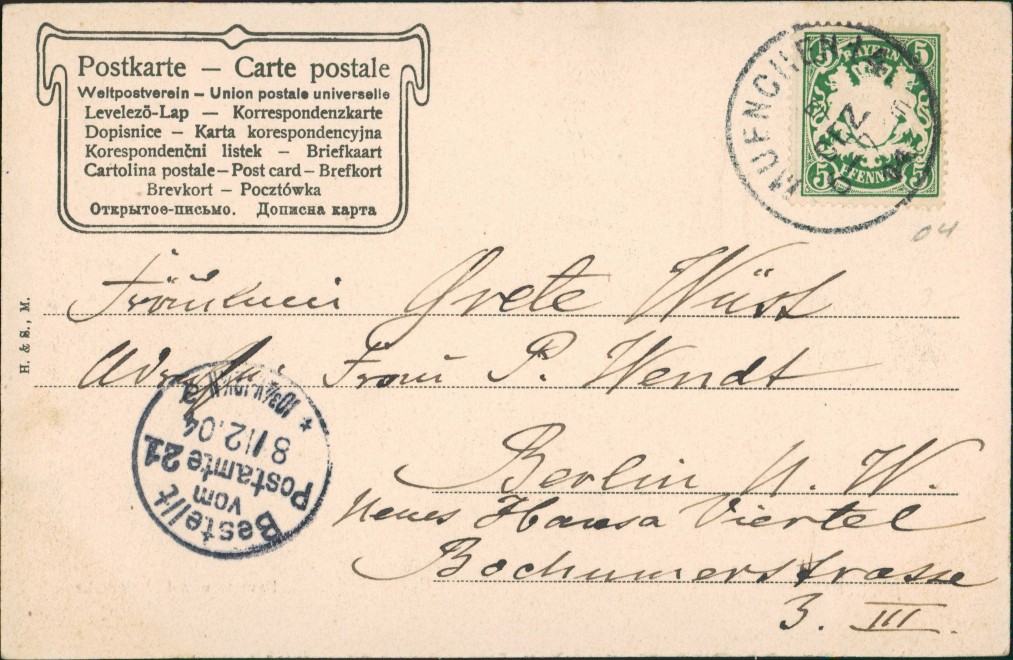 Postkarte – Carte postale
Weltpostverein – Union postale universelle
Levelező-Lap – Korrespondenzkarte
Dopisnice – Karta korespondencyjna
Korespondenčni listek – Briefkaart
Cartolina postale – Post card – Brefkort
Brevkort – Pocztówka
Открытое-письмо. Дописна карта
MUENCHEN
5 BAYERN 5
5 PFENNIG 5
04
H. & S., M.
Fräulein Grete Wüst
Frau P. Wendt
Berlin N. W.
Neues Hansa Viertel
Bochumerstrasse
3. III.
Bestellt
vom
Postamte 21
8/12.04